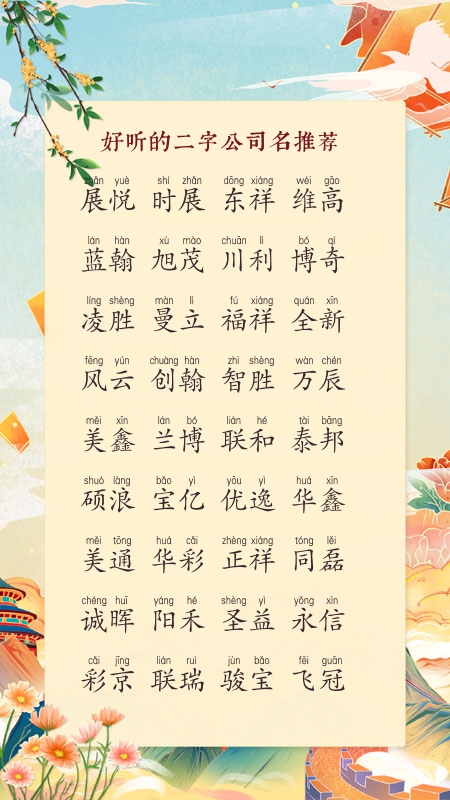 好听的二字公司名推荐
zhǎn yuè shí zhǎn dōng xiáng wéi gāo
展悦 时展 东祥 维高
lán hàn xù mào chuān lì bó qí
蓝翰 旭茂 川利 博奇
líng shèng màn lì fú xiáng quán xīn
凌胜 曼立 福祥 全新
fēng yún chuàng hàn zhì shèng wàn chén
风云 创翰 智胜 万辰
měi xīn lán bó lián hé tài bāng
美鑫 兰博 联和 泰邦
shuò làng bǎo yì yōu yì huá xīn
硕浪 宝亿 优逸 华鑫
měi tōng huá cǎi zhèng xiáng tóng lěi
美通 华彩 正祥 同磊
chéng huī yáng hé shèng yì yǒng xìn
诚晖 阳禾 圣益 永信
cǎi jīng lián ruì jùn bǎo fēi guān
彩京 联瑞 骏宝 飞冠